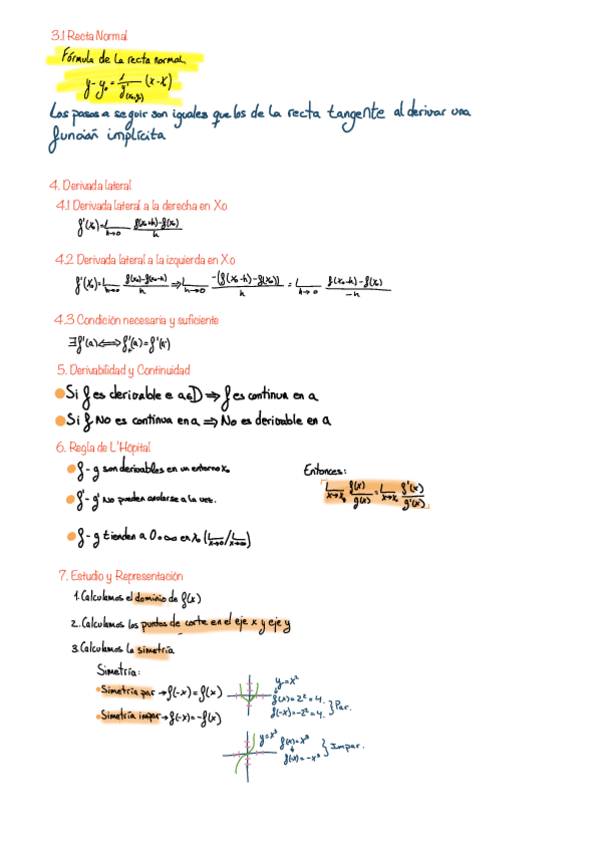 3.1 Recta Normal
Fórmula de la recta normal
y-y₀ = 1/f'(x₀,y₀) (x-x₀)
Los pasos a seguir son iguales que los de la recta tangente al derivar una
función implícita
4. Derivada lateral
4.1 Derivada lateral a la derecha en Xo
f'(x₀)=L h→0 f(x₀+h)-f(x₀)/h
4.2 Derivada lateral a la izquierda en Xo
f'(x₀)=L h→0 f(x₀)-f(x₀-h)/h ⇒ L h→0 -(f(x₀-h)-f(x₀))/h = L h→0 f(x₀-h)-f(x₀)/-h
4.3 Condición necesaria y suficiente
∃f'(a)⟺f'₊(a)=f'
5. Derivabilidad y Continuidad
Si f es derivable e a∈D ⇒ f es continua en a
Si f No es continua en a ⇒ No es derivable en a
6. Regla de L'Hôpital
f - g son derivables en un entorno x₀
Entonces:
f' - g' No pueden anularse a la vez.
L x→x₀ f(x)/g(x) = L x→x₀ f'(x)/g'(x)
f - g tienden a 0 ∞ en x₀
7. Estudio y Representación
1. Calculamos el dominio de f(x)
2. Calculamos los puntos de corte en el eje x y eje y
3. Calculamos la simetría
Simetría:
Simetría par → f(-x) = f(x)
y=x²
f(x)=2²=4.
f(-x)=-2²=4.
} Par.
Simetría impar → f(-x) = -f(x)
y=x³
f(x)=x³
f(-x)=-x³
} Impar.